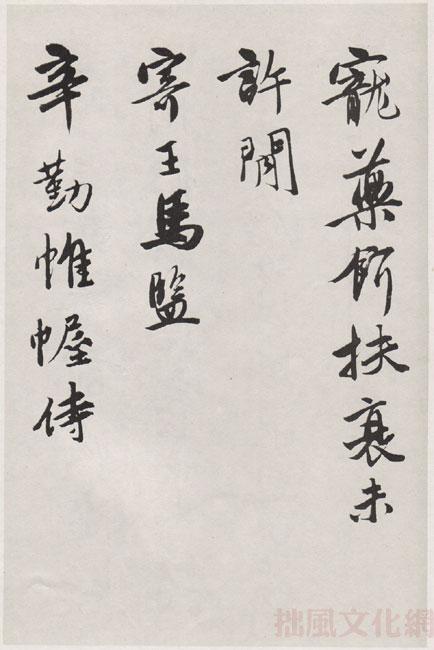 寵藥餌扶衰未
許閒
寄王馬監
辛勤帷幄侍
拙風文化網